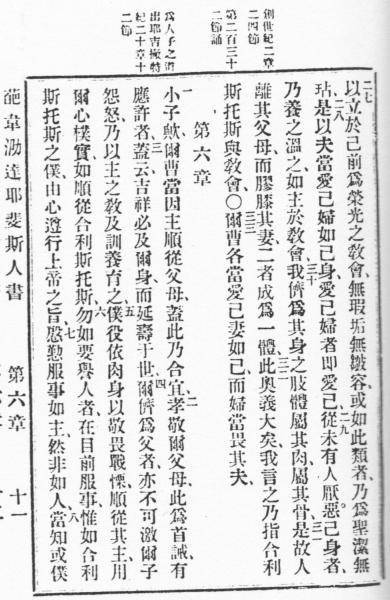 創世紀二章
二四節
第二百三十
二節誦
為人子之道
出耶吉撇特
紀二十章十
二節
二七
以立於己前為榮光之教會、無瑕垢、無皺容、或如此類者、乃為聖潔無
二八 二九
玷、是以夫當愛己婦如己身、愛己婦者即愛己、從未有人厭惡己身者、
三十 三一
乃養之溫之、如主於教會、我儕為其身之肢體、屬其肉屬其骨、是故人
三二
離其父母、而膠膝其妻、二者成為一體、此奧義大矣、我言之乃指合利
三三
斯托斯與教會○爾曹各當愛己妻如己、而婦當畏其夫、
第六章
一 二
小子歟、爾曹當因主順從父母、蓋此乃合宜、孝敬爾父母、此為首誡有
三 四
應許者、蓋云吉祥必及爾身、而延壽于世、爾儕為父者、亦不可激爾子
五
怨怒、乃以主之敎及訓養育之、僕役依肉身以敬畏戰慄、順從其主、用
六
爾心樸實、如順從合利斯托斯、勿如要譽人者在目前服事、惟如合利
七 八
斯托斯之僕、由心遵行上帝之旨、慇懃服事如主、然非如人、當知或僕
葩韋泐達耶斐斯人書 第六章 十一